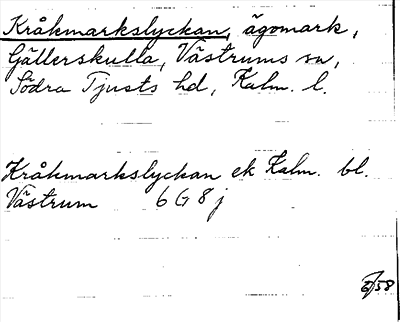 Kråkmarkslyckan, ägomark,
Gällerskulla, Västrums sn,
Södra Tjusts hd, Kalm. l.
Kråkmarkslyckan ek Kalm. bl.
Västrum 6 G 8 j
58